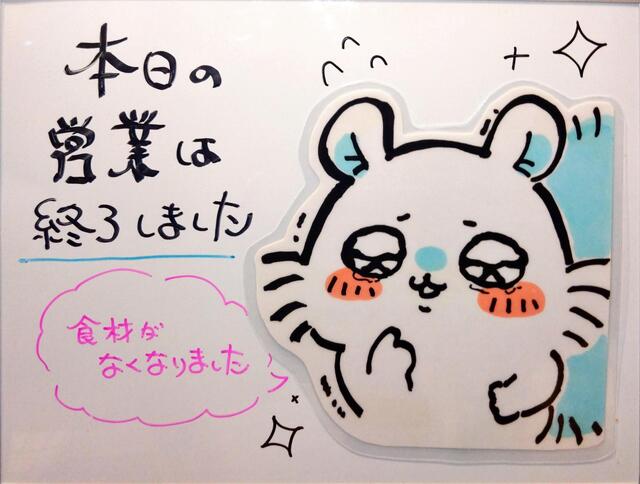 本日の
営業は
終了しました
食材が
なくなりました